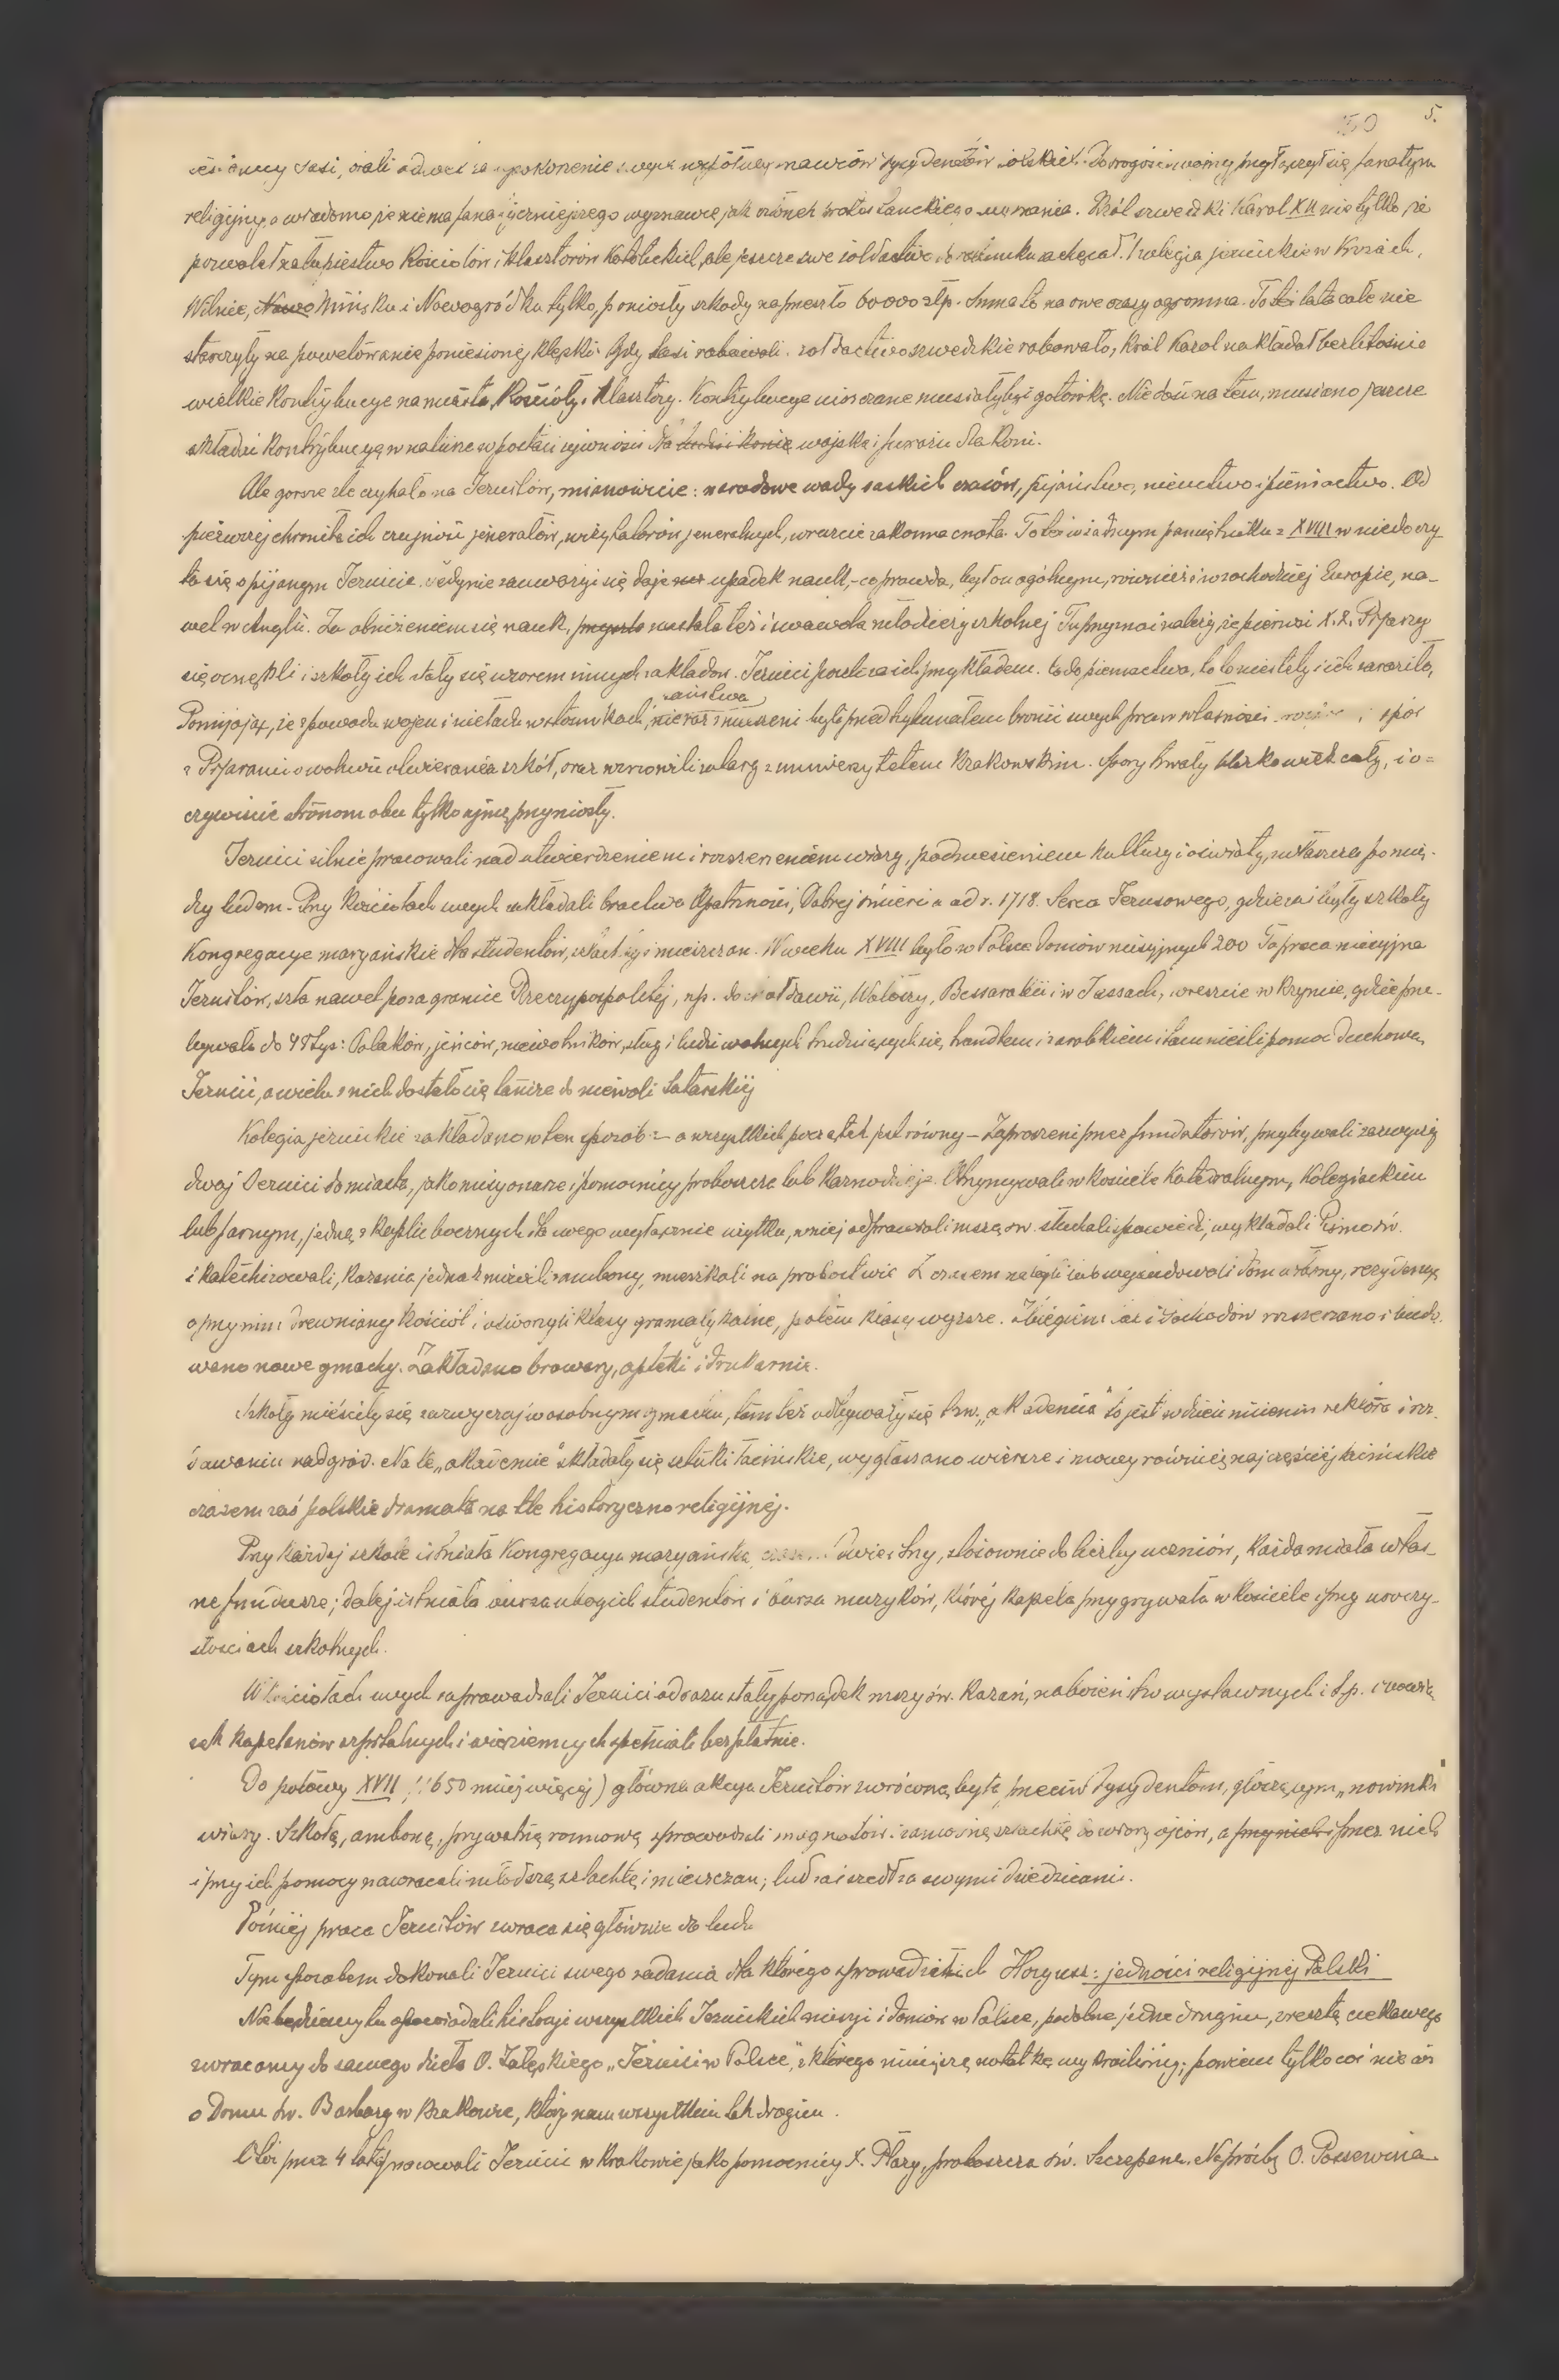 5.
50
Sasi, brali odwet za upokorzenie swych współwyznawców dysydentów polskich. Do srogości wojny przyłączył się fanatyzm
religijny, a wiadomo że niema fanatyczniejszego wyznawcę jak ówcześ protestanckiego wyznania. Król szwedzki Karol XII nie tylko że
pozwalał na łupiestwo Kościołów i klasztorów Katolickich, ale jeszcze swe żołdactwo do rabunku zachęcał. Kolegia jezuickie w Krożach,
Wilnie, Nowo Mińsku i Nowogródku tylko, poniosły szkody na przeszło 60000 złp. Suma to na owe czasy ogromna. Toteż lata całe nie
starczyły na powetowanie poniesionej klęski. Gdy Sasi rabowali, żołdactwo szwedzkie rabowało, Król Karol nakładał bezlitośnie
wielkie kontrybucye na miasta, Kościoły i klasztory. Kontrybucye uiszczane musiały być gotówką. Nie dość na tem, musiano jeszcze
składać kontrybucyę w naturze w postaci żywności dla ludzi i konie wojska i furażu dla koni.
Ale gorsze złe czyhało na Jezuitów, mianowicie: narodowe wady saskich czasów, pijaństwo, nieuctwo i pieniactwo. Od
pierwszej chroniła ich czujność jenerałów, wizytatorów jeneralnych, wreszcie zakonna cnota. Toteż w żadnym pamiętniku z XVIII w nie doczy
ta się o pijanym Jezuicie. Jedynie zauważyć się daje upadek nauk, - co prawda, był on ogólnym, również i w zachodniej Europie, na-
wet w Anglii. Za obniżeniem się nauk, przyszła nastała też i swawola młodzieży szkolnej Tu przyznać należy, że pierwsi X.X. Pijarzy
się ocknęli i szkoły ich stały się wzorem innych zakładów. Jezuici poszli za ich przykładem. Co do pieniactwa, to to niestety i ich zaraziło,
Pomijając, że z powodu wojen i nieładu w stosunkach państwa nieraz zmuszeni byli przed trybunałem bronić swych praw własności i spór
z Pijarami o wolność otwierania szkół, oraz wznowili zatarg z uniwersytetem Krakowskim. Spory trwały blisko wiek cały, i o=
czywiście stronom obu tylko ujmę przyniosły.
Jezuici silnie pracowali nad utwierdzeniem i rozszerzeniem wiary, podniesieniem kultury i oświaty, zwłaszcza pomię-
dzy ludem. Przy Kościołach swych zakładali bractwa Opatrzności, Dobrej śmierci a od r. 1718. Serca Jezusowego, gdzie zaś były szkoły
Kongregacye maryańskie dla studentów, szlachty i mieszczan. W wieku XVIII było w Polsce domów misyjnych 200 Ta praca misyjna
Jezuitów, szła nawet poza granice Rzeczypospolitej, np. do Mołdawii, Wołoszy, Bessarabii i w Jassach, wreszcie w Krymie, gdzie prze-
bywało do 40 tys: Polaków, jeńców, niewolników, sług i ludzi wolnych trudniących się handlem i zarobkiem i tam nieśli pomoc duchową
Jezuici, a wielu z nich dostało się także do niewoli tatarskiej
Kolegia jezuickie zakładano w ten sposób: - a wszystkich początek był równy - Zaproszeni przez fundatorów, przybywali zazwyczaj
dwaj Jezuici do miasta, jako misyonarze i pomocnicy proboszcza lub kaznodzieje. Otrzymywali w kościele Katedralnym, Kolegiackim
lub farnym, jedną z kaplic bocznych dla swego wyłącznie użytku, w niej odprawiali mszę św. słuchali spowiedzi, wykładali Pismo św.
i katechizowali, kazania jednak mówili z ambony, mieszkali na probostwie Z czasem nabyli lub wybudowali dom własny, rezydencyę
a przy nim drewniany kościół i otworzyli klasy gramatykalne, potem klasy wyższe. Z biegiem lat i dochodów rozszerzano i budo-
wano nowe gmachy. Zakładano browary, apteki i drukarnie.
Szkoły mieściły się zazwyczaj w osobnym gmachu, tam też odbywały się tzw. „akademia" to jest w dzień imienin rektora i roz-
dawaniu nadgród. Na te „akademie" składały się sztuki łacińskie, wygłaszano wiersze i mowy również najczęściej łacińskie
czasem zaś polskie dramata na tle historyczno religijnej.
Przy każdej szkole istniała Kongregacya maryańska, czasem dwie i trzy, stosownie do liczby uczniów, Każda miała włas-
ne fundusze; dalej istniała bursa ubogich studentów i bursa muzyków, której kapela przygrywała w kościele i przy uroczy-
stościach szkolnych.
W kościołach swych zaprowadzali Jezuici odrazu stały porządek mszy św. kazań, nabożeństw wystawnych i t.p. obowią
zek kapelanów szpitalnych i więziennych spełniali bezpłatnie.
Do połowy XVII (1650 mniej więcej) główna akcya Jezuitów zwróconą była przeciw dysydentom, głoszącym „nowinki"
wiary. Szkołą, amboną, prywatną rozmową sprowadzali magnatów i zamożną szlachtę do wiary ojców, a przy nich i przez nich
i przy ich pomocy nawracali młodszą szlachtę i mieszczan; lud zaś szedł za swymi dziedzicami.
Później praca Jezuitów zwraca się głównie do ludu
Tym sposobem dokonali Jezuici swego zadania dla którego sprowadził ich Hozyusz: jedności religijnej Polski
Nie będziemy tu opowiadali historje wszystkich Jezuickich misyi i domów w Polsce, podobne jedne drugim, zresztą ciekawego
zwracamy do samego dzieła O. Załęskiego „Jezuici w Polsce", z którego niniejszą notatkę my kreślimy; powiem tylko coś nie coś
o Domu św. Barbary w Krakowie, który nam wszystkim tak drogim.
Otóż przez 4 lata pracowali Jezuici w Krakowie jako pomocnicy X. Plazy, proboszcza św. Szczepana. Na prośbę O. Possewina